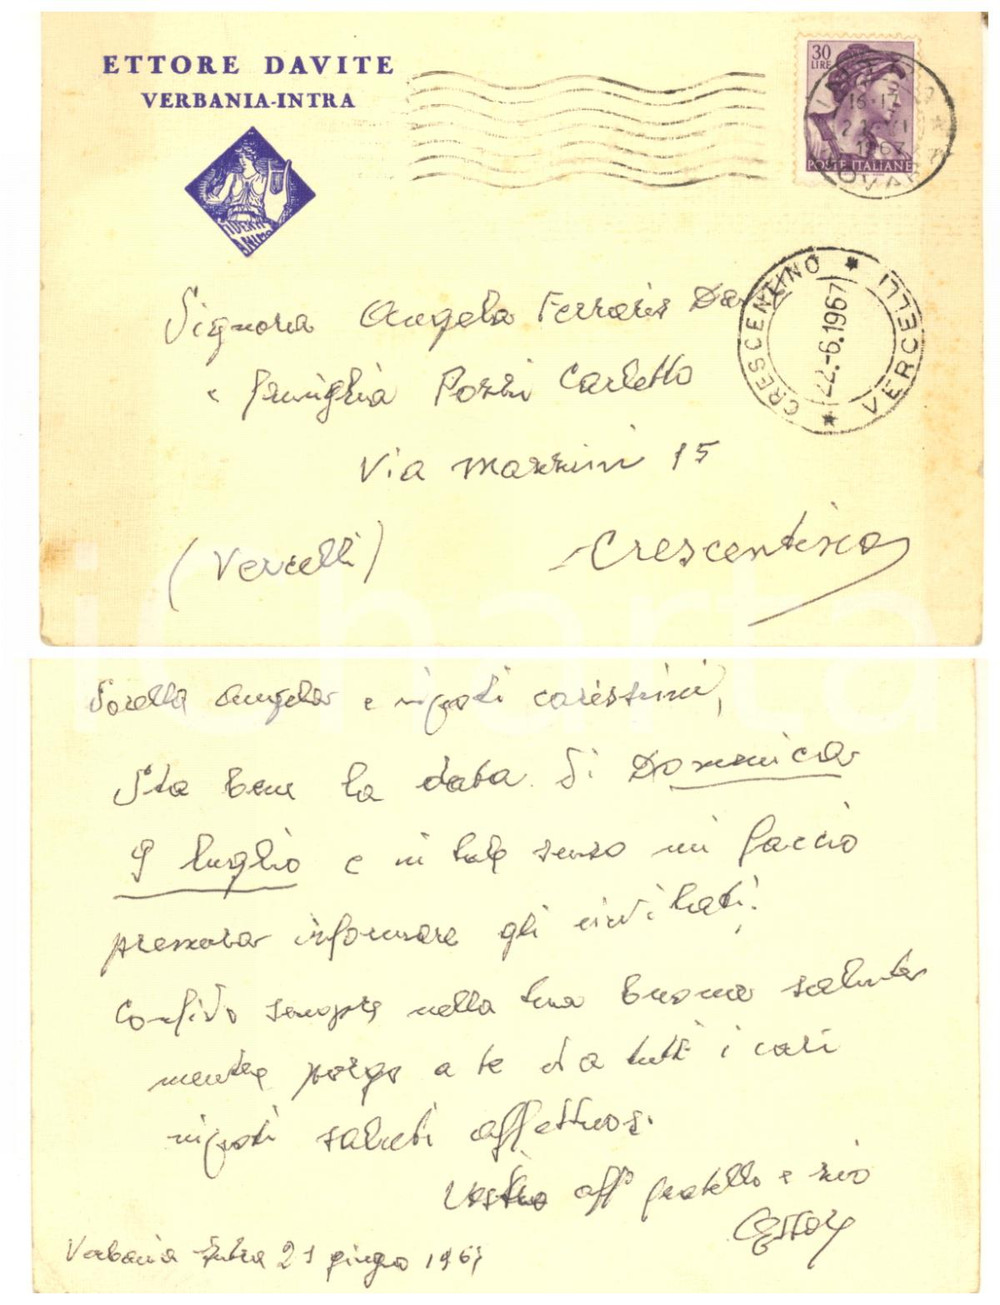 ETTORE DAVITE
VERBANIA-INTRA
30
LIRE
POSTE ITALIANE
16-17
1967
CRESCENTINO * VERCELLI *
22.-6.1967
Signora Angela Ferraris
e famiglia Pozzi Carletto
Via Mazzini 15
Crescentino
(Vercelli)
Sorella Angela e nipoti carissimi,
Sta bene la data di Domenica
9 luglio e in tale senso mi faccio
premura informare gli invitati;
Confido sempre nella tua buona salute
mentre porgo a te ed a tutti i cari
nipoti saluti affettuosi.
Vostro aff° fratello e zio
Ettore
Verbania Intra 21 giugno 1967
icharta